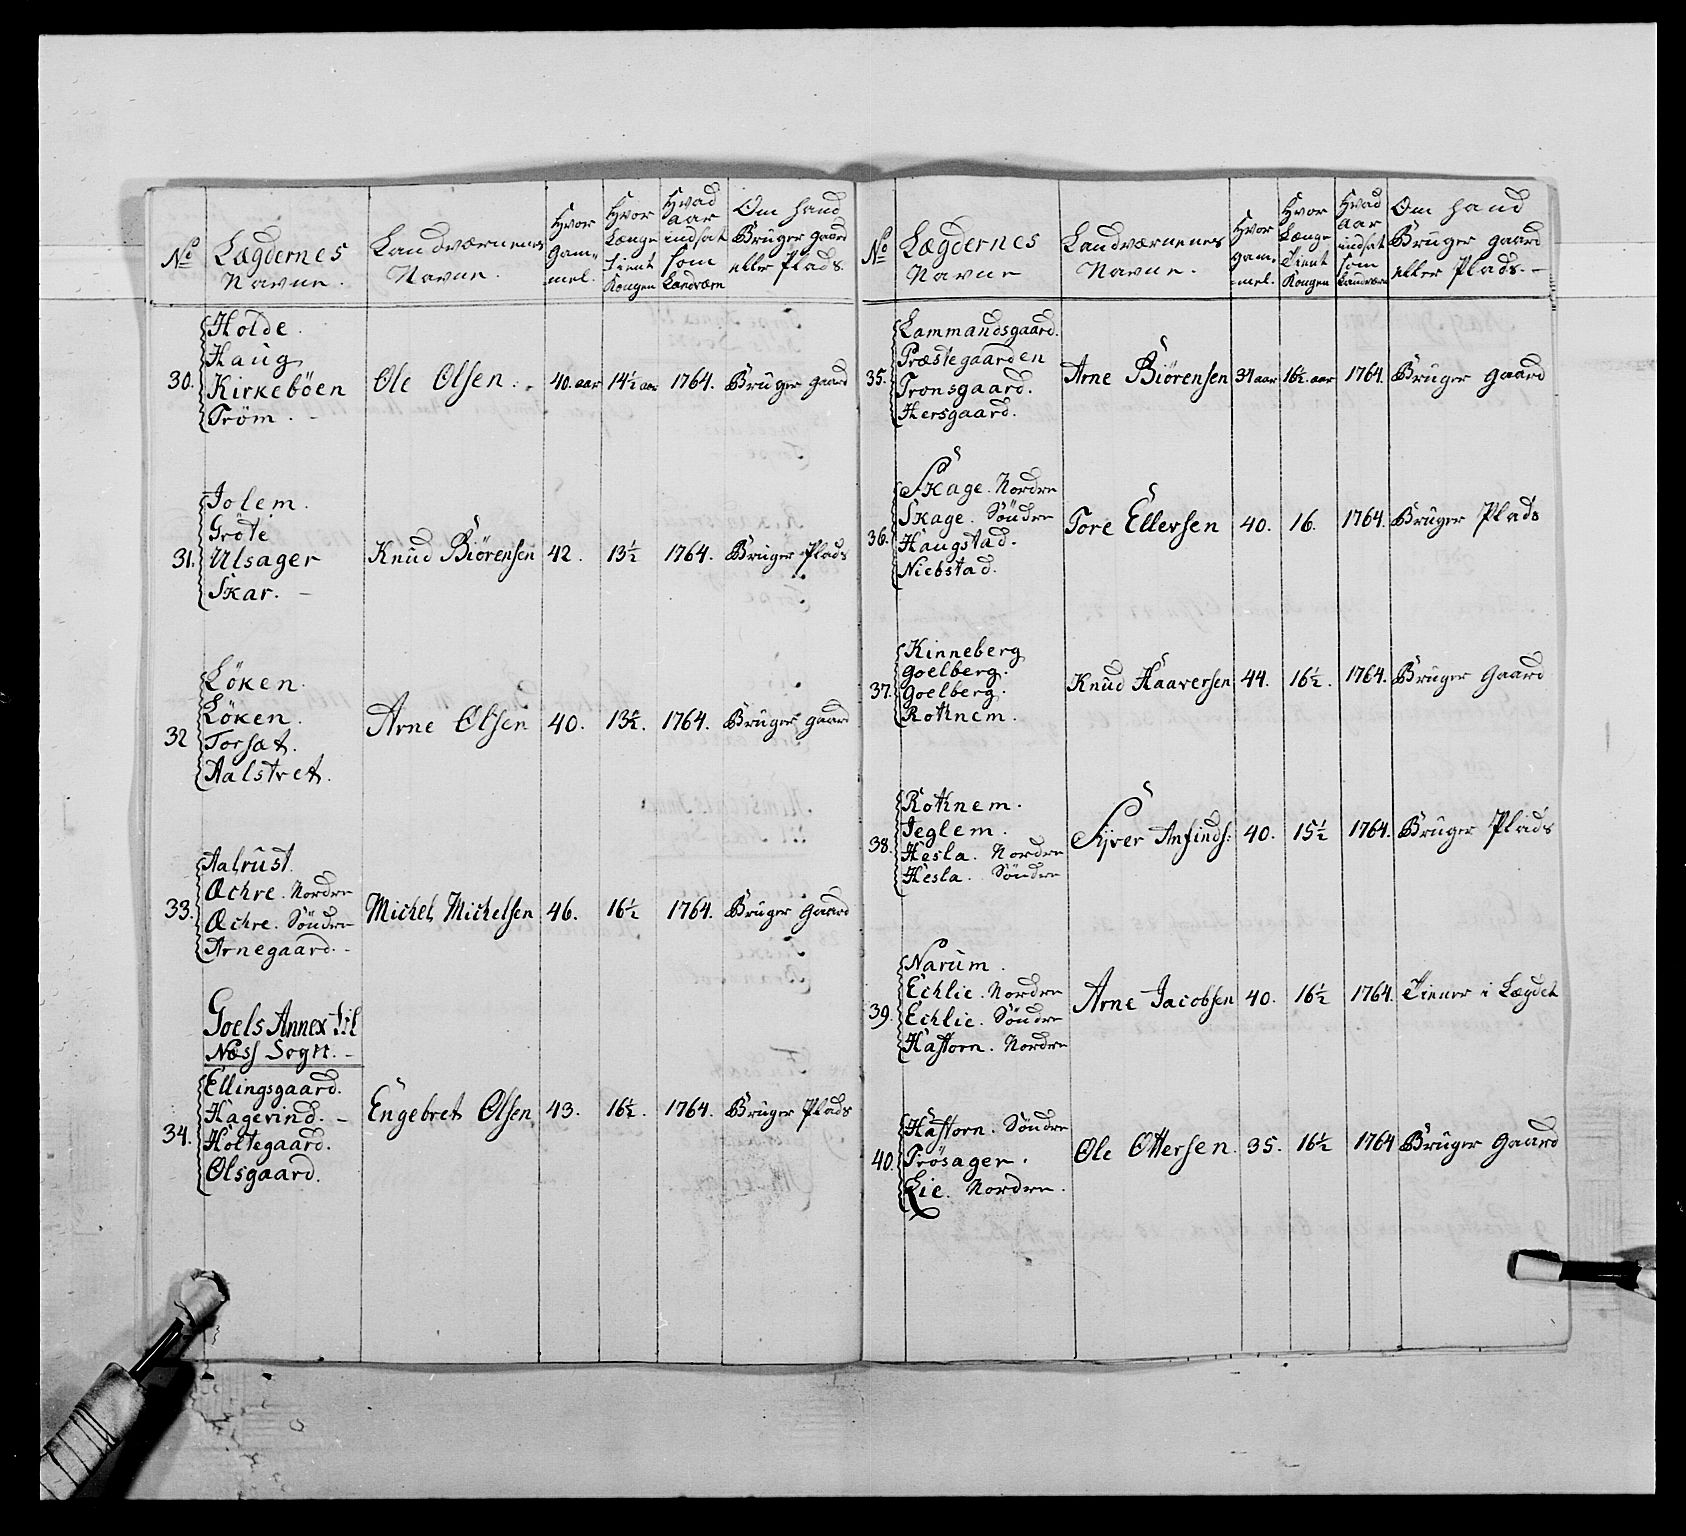 No
Lægdernes
Navne.
Landværnenes
Navne.
Hvor
gam-
mel.
Hvor
Længe
tient
Kongen
Hvad
aar
indsat
som
Landværn
Om hand
Bruger gaard
eller Plads.
30.
Holde.
Haug
Kirkeböen
Tröm. -
Ole Olsen. 40. aar 14½ aar 1764. Bruger gaard
31.
Jolem.
Gröte
Ulsager
Skar. -
Knud Biörensen 42. 13½ 1764. Bruger Plads
32
Löken.
Löken.
Torsat.
Aalstvet.
Arne Olsen 40. 13½. 1764. Bruger gaard
33.
Aalrust.
Œchre. Nordre
Œchre. Söndre
Arnegaard. -
Michel Michelsen 46. 16½ 1764. Bruger Gaard
Goels Annex til
Næss Sogn. -
34.
Ellingsgaard.
Hagevind. -
Holtegaard.
Olsgaard.
Engebret Olsen 43. 16½. 1764. Bruger Plads
No
Lægdernes
Navne
Landværnenes
Navne.
Hvor
gam-
mel.
Hvor
Længe
Tient
Kongen
Hvad
aar
indsat
som
Landværn
Om hand
Bruger gaard
eller Plads. -
35.
Lammandsgaard.
Præstegaarden
Tronsgaard.
Hersgaard.
Arne Biörensen 34 aar 16½. aar 1764. Bruger gaard
36.
Skage. Nordre
Skage. Söndre
Haugstad.
Niebstad.
Tore Ellersen 40. 16. 1764. Bruger Plads
37.
Kinneberg
Goelberg.
Goelberg.
Rotnem.
Knud Haaversen 44. 16½. 1764. Bruger Gaard
38.
Rotnem.
Jeglem.
Hesla. Nordre
Hesla. Söndre
Syver Anfinds: 40. 15½ 1764. Bruger Plads
39.
Narum.
Echlie. Nordre
Echlie. Söndre
Haftorn. Nordre
Arne Jacobsen 40. 16½ 1764. Tiener i Lægdet
40.
Haftorn. Söndre
Trösager.
Lie. Nordre.
Ole Ottersen. 35. 16½ 1764 Bruger Gaard